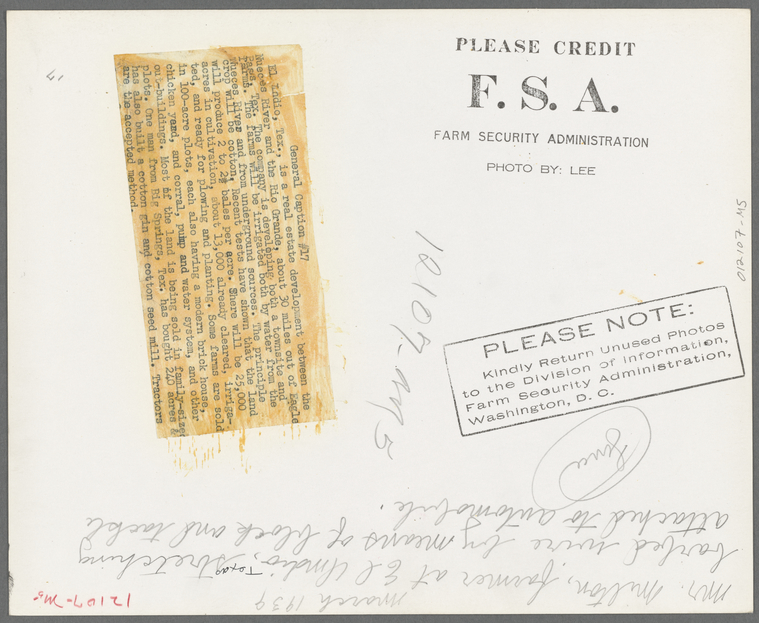 PLEASE CREDIT
F. S. A.
FARM SECURITY ADMINISTRATION
PHOTO BY: LEE
General Caption #17
El Indio, Tex., is a real estate development between the
Nueces River and the Rio Grande, about 30 miles out of Eagle
Pass, Tex. The company is developing both a townsite and
farms. The farms will be irrigated both by water from the
Nueces River and from underground sources. The principle
crop will be cotton. Recent tests have shown that the land
will produce 2 to 2½ bales per acre. There will be 25,000
acres in cultivation, about 13,000 already cleared, irriga-
ted, and ready for plowing and planting. Some farms are sold
in 100-acre plots, each also having a modern brick house,
chicken yard, and corral, pump and water system, and other
out-buildings. Most of the land is being sold in family-sized
plots. One man from Big Springs, Tex. has bought 240 acres &
has also built a cotton gin and cotton seed mill. Tractors
are the accepted method.
12107-M5
012107-M5
PLEASE NOTE:
Kindly Return Unused Photos
to the Division of Information,
Farm Security Administration,
Washington, D. C.
Fence
March 1939
Mr. Milton, farmer at El Indio, Texas stretching
barbed wire by means of block and tackle
attached to automobile.
12107-M5